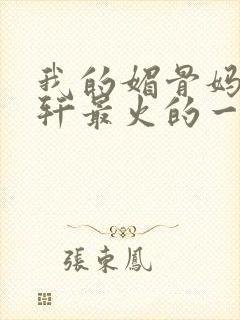 我的媚骨妈
轩最火的一
張東鳳